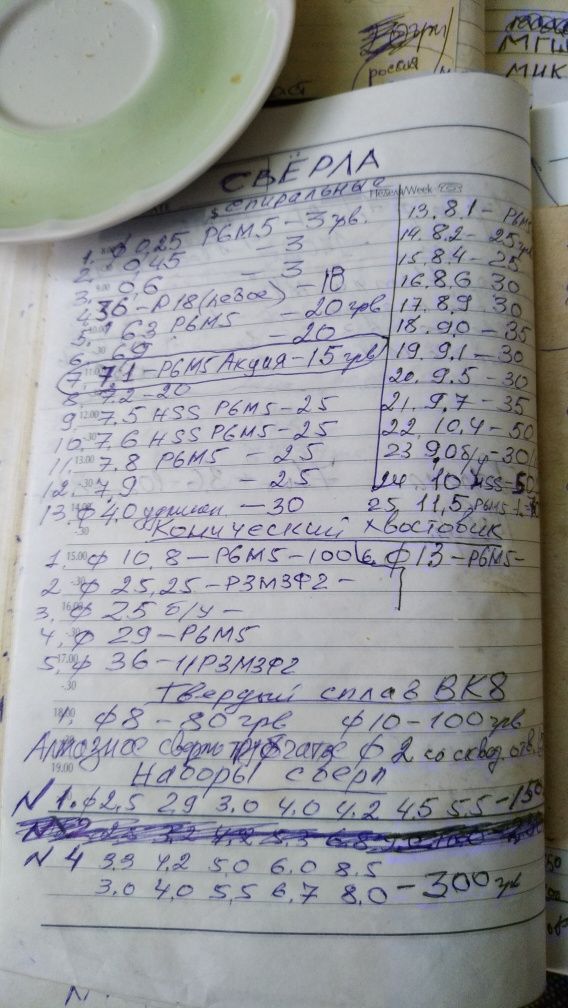 россия
МГШ
МИК
СВЁРЛА
спиральные
Week
1. ф 0,25 Р6М5 – 3 грв.
2. 0,45 – 3
3. 0,6 – 3
4. 3,6 – Р18 (левое) – 18
5. 6,3 Р6М5 – 20 грв
6. 6,9 – 20
7. 7,1 – Р6М5 Акция – 15 грв
8. 7,2 – 20
9. 7,5 HSS Р6М5 – 25
10. 7,6 HSS Р6М5 – 25
11. 7,8 Р6М5 – 25
12. 7,9 – 25
13. ф 4,0 удлинен. – 30
13. 8,1 –
14. 8,2 – 25 грв
15. 8,4 – 25
16. 8,6 30
17. 8,9 30
18. 9,0 – 35
19. 9,1 – 30
20. 9,5 – 30
21. 9,7 – 35
22. 10,4 – 50
23 9,0 б/у – 30
24. 10 HSS – 50
25. 11,5 Р6М5
Конический хвостовик
1. ф 10,8 – Р6М5 – 100
6. ф 13 – Р6М5 –
2. ф 25,25 – Р3М3Ф2 –
3. ф 25 б/у –
4. ф 29 – Р6М5
5. ф 36 – 11Р3М3Ф2
Твердый сплав ВК8
1. ф 8 – 80 грв ф 10 – 100 грв
Алмазное сверло трубчатое ф 2 со сквоз. отв.
Наборы сверл
N 1. ф 2,5 2,9 3,0 4,0 4,2 4,5 5,5 – 150
N 4 3,3 4,2 5,0 6,0 8,5
3,0 4,0 5,5 6,7 8,0 – 300 грв